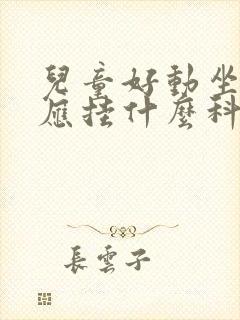 兒童好動坐
應掛什麼科
長雲子